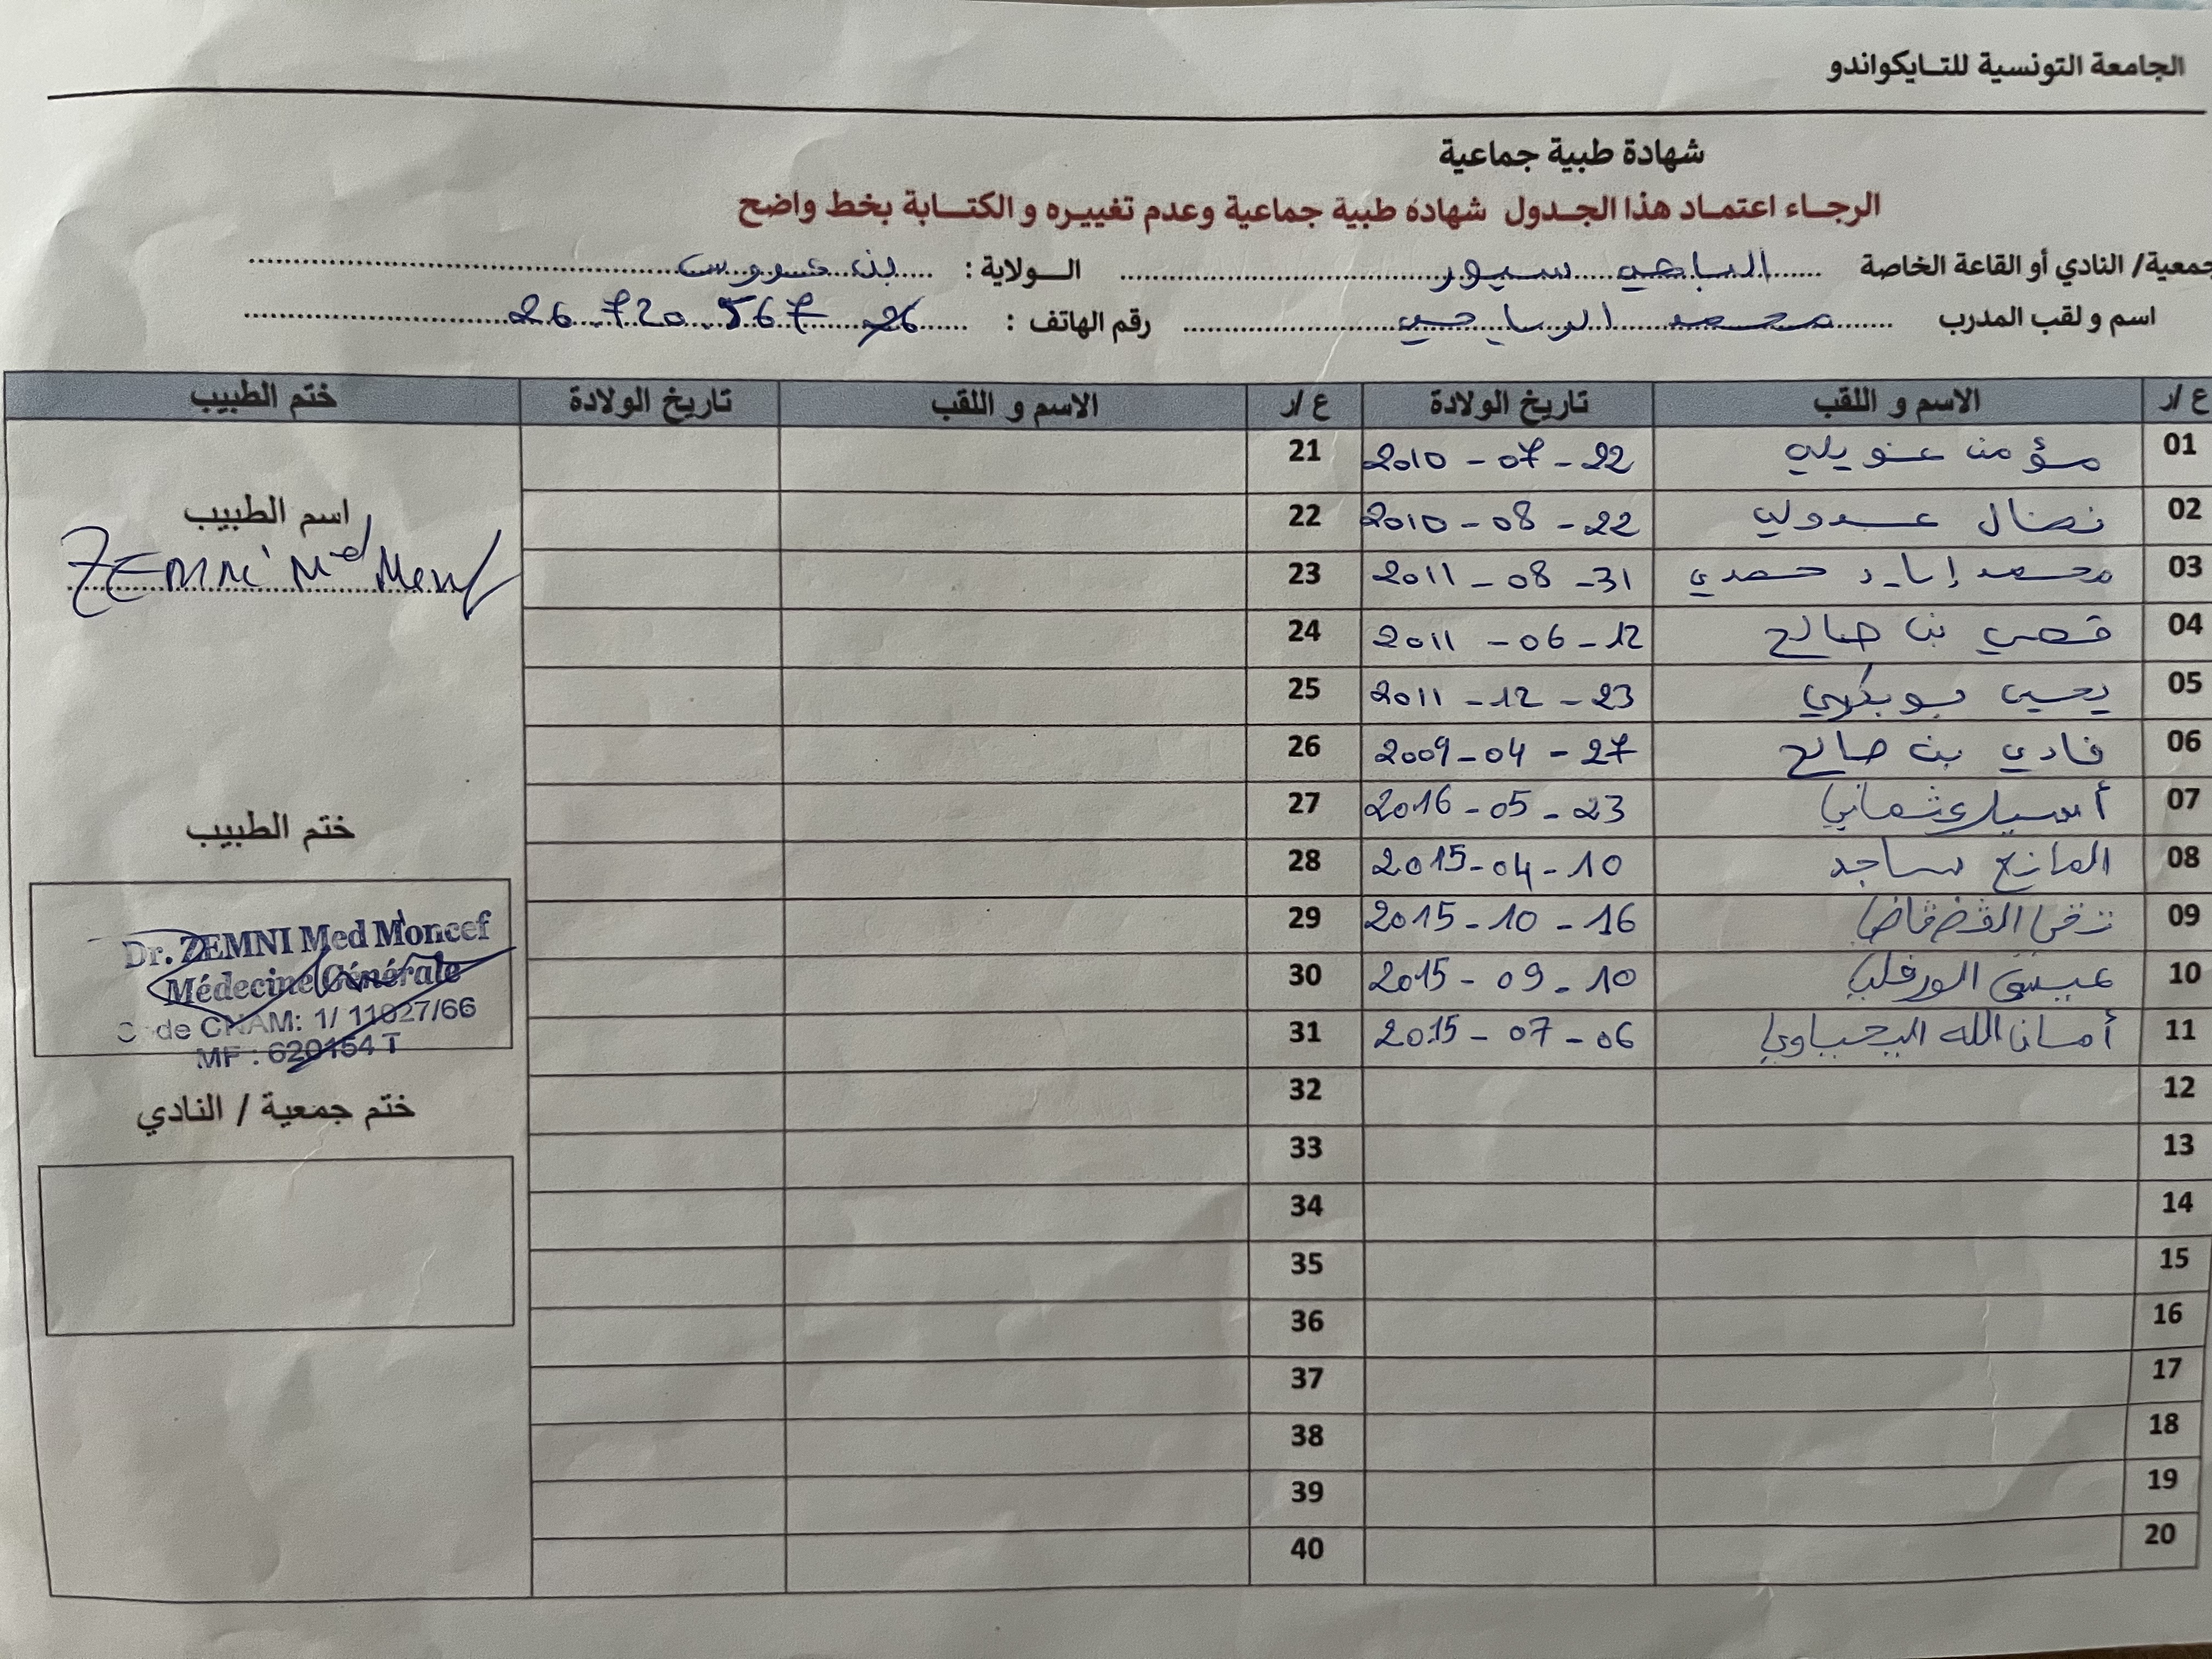 الجامعة التونسية للتايكواندو
شهادة طبية جماعية
الرجاء اعتماد هذا الجدول شهادة طبية جماعية وعدم تغييره و الكتابة بخط واضح
جمعية/ النادي أو القاعة الخاصة الباجي سبور الولاية : بن عروس
اسم و لقب المدرب محمد الباجي رقم الهاتف : 26.720.567
ع /ر الاسم و اللقب تاريخ الولادة ع /ر الاسم و اللقب تاريخ الولادة ختم الطبيب
01 مؤمن عويلي 2010 - 07 - 22 21
02 نضال عبدولي 2010 - 08 - 22 22
اسم الطبيب
ZEMNI Md
03 محمد إياد حمدي 2011 - 08 - 31 23
04 قصي بن صالح 2011 - 06 - 12 24
05 يحيى بوبكري 2011 - 12 - 23 25
06 فادي بن صالح 2009 - 04 - 27 26
07 أسيل عثماني 2016 - 05 - 23 27
ختم الطبيب
08 المانع ساجد 2015 - 04 - 10 28
09 2015 - 10 - 16 29
10 الورفلي 2015 - 09 - 10 30
11 أمان الله اليحياوي 2015 - 07 - 06 31
Dr. ZEMNI Med Moncef
Médecine Générale
Code CNAM: 1/ 11027/66
MF : 620154 T
12 32
ختم جمعية / النادي
13 33
14 34
15 35
16 36
17 37
18 38
19 39
20 40